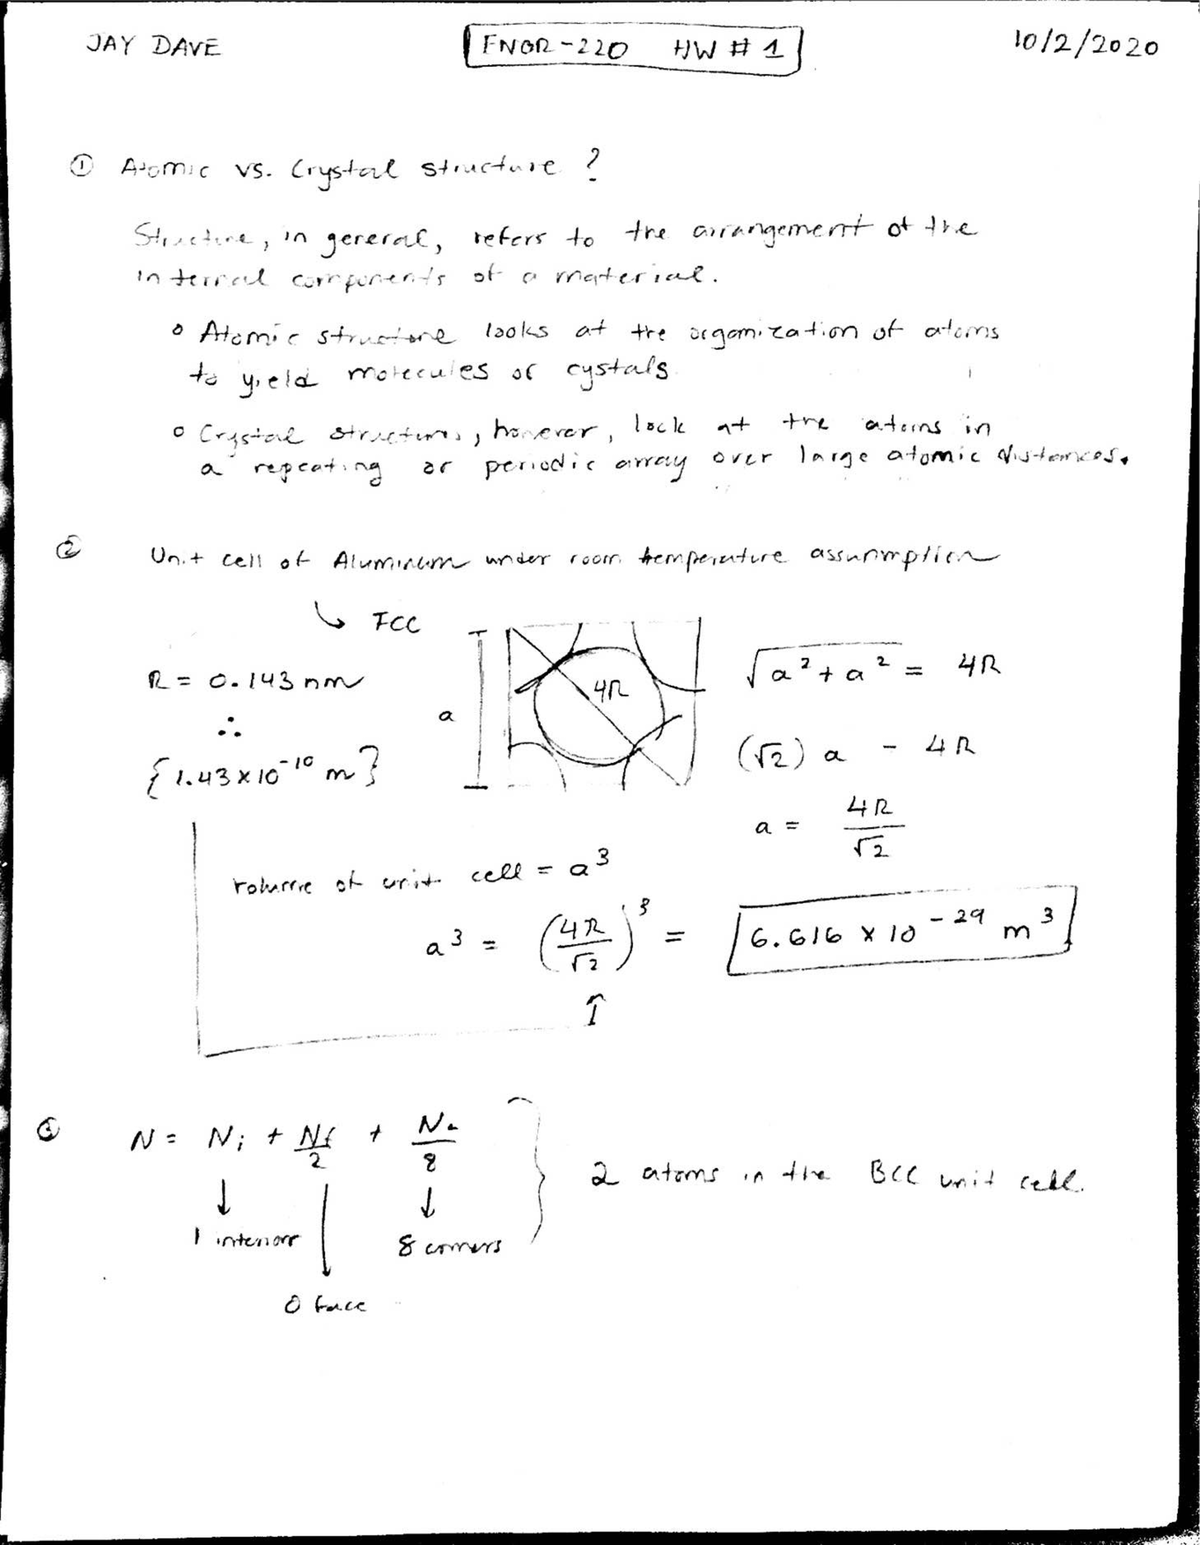 JAY DAVE
ENGR-220 HW # 1
10/2/2020
① Atomic vs. Crystal structure ?
Structure, in general, refers to the arrangement of the
internal components of a material.
o Atomic structure looks at the organization of atoms
to yield molecules or cystals.
o Crystal structures, however, look at the atoms in
a repeating or periodic array over large atomic distances.
② Unit cell of Aluminum under room temperature assunmption
↳ FCC
R = 0.143 nm
∴
{1.43 x 10⁻¹⁰ m}
a
4R
√a² + a² = 4R
(√2) a - 4R
a = 4R/√2
volume of unit cell = a³
a³ = (4R/√2)³ = 6.616 x 10⁻²⁹ m³
③ N = Ni + Nf/2 + Nc/8 } 2 atoms in the BCC unit cell.
1 interior
8 corners
0 face